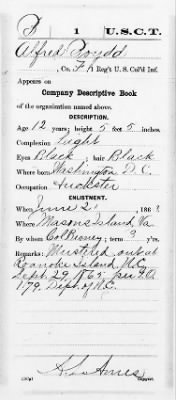 B 1 U.S.C.T.
Alfred Boydd
, Co. F, 1 Reg't U.S. Col'd Inf.
Appears on
Company Descriptive Book
of the organization named above.
DESCRIPTION.
Age 12 years; height 5 feet 5 inches.
Complexion Light
Eyes Black ; hair Black
Where born Washington D.C.
Occupation Huckster
ENLISTMENT.
When June 2, 1863
Where Masons Island, Va
By whom Col Birney; term 3 y'rs.
Remarks: Mustered out at
Roanoke Island N.C.
Sept. 29, 1865 per S.O.
179, Dept. of N.C.
Ames
Copyist.